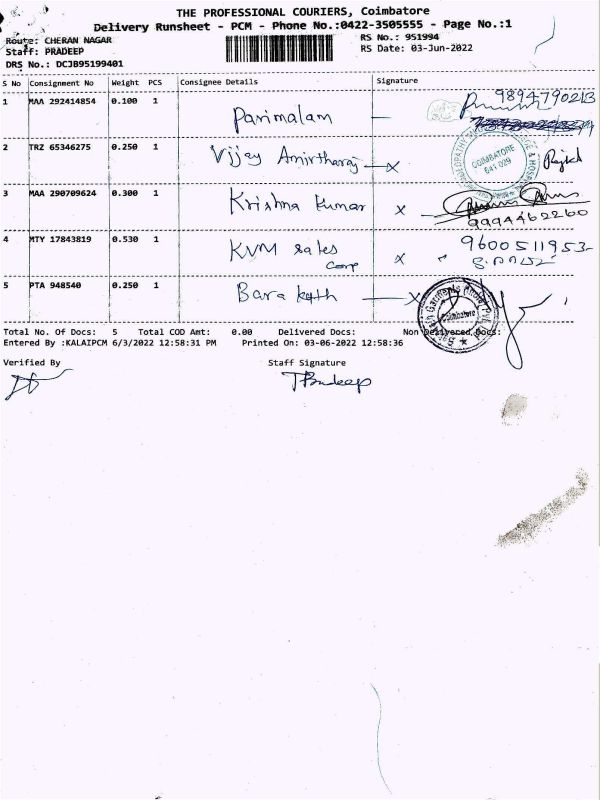 THE PROFESSIONAL COURIERS, Coimbatore
Delivery Runsheet - PCM - Phone No.:0422-3505555 - Page No.:1
Route: CHERAN NAGAR RS No.: 951994
Staff: PRADEEP RS Date: 03-Jun-2022
DRS No.: DCJB95199401
S No Consignment No Weight PCS Consignee Details Signature
1 MAA 292414854 0.100 1 Parimalam 9894790213
2 TRZ 65346275 0.250 1 Vijay Amirtharaj x COIMBATORE 641 029
3 MAA 290709624 0.300 1 Krishna Kumar x 9994462260
4 MTY 17843819 0.530 1 KVM sales Corp x 9600511953
5 PTA 948540 0.250 1 Barakath x Coimbatore
Total No. Of Docs: 5 Total COD Amt: 0.00 Delivered Docs: Non Delivered Docs:
Entered By :KALAIPCM 6/3/2022 12:58:31 PM Printed On: 03-06-2022 12:58:36
Verified By Staff Signature